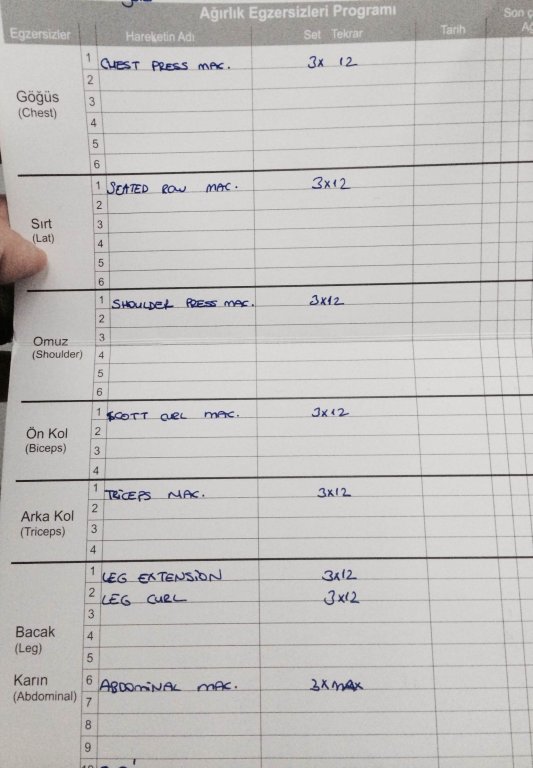 Ağırlık Egzersizleri Programı
Egzersizler Hareketin Adı Set Tekrar Tarih Son
Göğüs
(Chest)
1 CHEST PRESS MAC. 3x 12
2
3
4
5
6
Sırt
(Lat)
1 SEATED ROW MAC. 3x12
2
3
4
5
6
Omuz
(Shoulder)
1 SHOULDER PRESS MAC. 3x12
2
3
4
5
6
Ön Kol
(Biceps)
1 SCOTT CURL MAC. 3x12
2
3
4
Arka Kol
(Triceps)
1 TRİCEPS MAC. 3x12
2
3
4
Bacak
(Leg)
1 LEG EXTENSION 3x12
2 LEG CURL 3x12
3
4
5
Karın
(Abdominal)
6 ABDOMİNAL MAC. 3xMAX
7
8
9
10